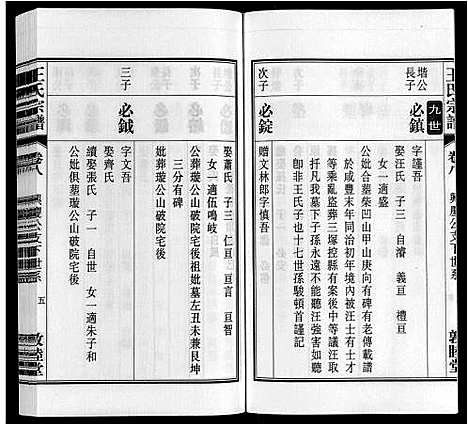 王氏宗譜
卷八
興慶公支下世系
敦睦堂
九世
堦公長子
必鎮
字謹吾
娶汪氏 子三 自濬 義亘 禮亘
女一適盛
公妣合葬柴凹山甲山庚向有碑有老傳載譜
於咸豐末年同治初年境內被汪士有士才
等乘亂盜葬三塚控縣有案後中等議汪取
抔凡我墓下子孫永遠不能聽汪強害如或
卽非王氏子也十七世孫駿頓首謹記
次子
必錠
贈文林郎字慎吾
娶蕭氏 子三 仁亘 亘言 亘智
女一適伍鳴岐
公葬璇公山破院宅後祖妣墓左丑未兼艮坤
三分有碑
妣葬璇公山破院宅後
三子
必鉞
字文吾
娶齊氏
續娶張氏 子一 自世 女一適朱子和
公妣俱葬璇公山破院宅後
王氏宗譜
卷八
興慶公支下世系
五
敦睦堂